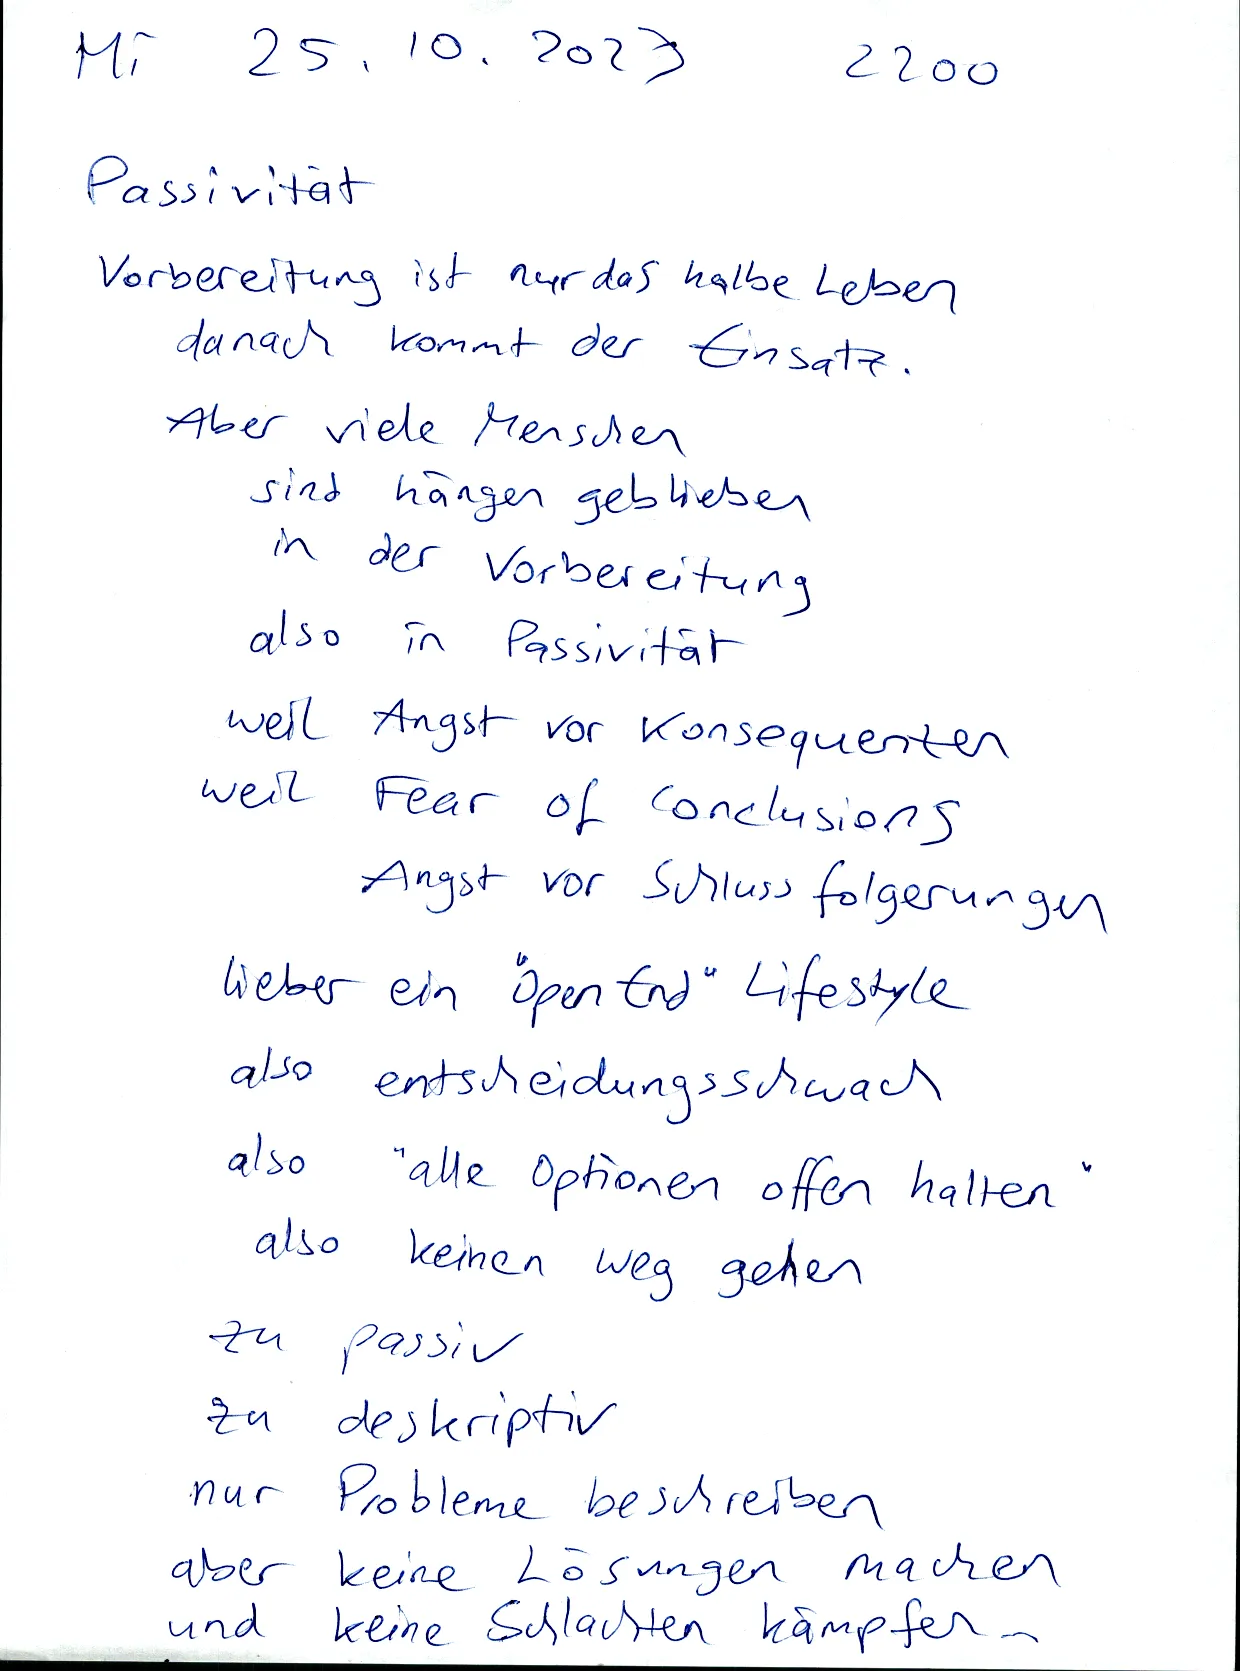 Mi 25.10.2023 2200
Passivität
Vorbereitung ist nur das halbe Leben
danach kommt der Einsatz.
Aber viele Menschen
sind hängen geblieben
in der Vorbereitung
also in Passivität
weil Angst vor Konsequenten
weil Fear of Conclusions
Angst vor Schlussfolgerungen
lieber ein "Open End" Lifestyle
also entscheidungsschwach
also "alle Optionen offen halten"
also keinen weg gehen
zu passiv
zu deskriptiv
nur Probleme beschreiben
aber keine Lösungen machen
und keine Schlachten kämpfen